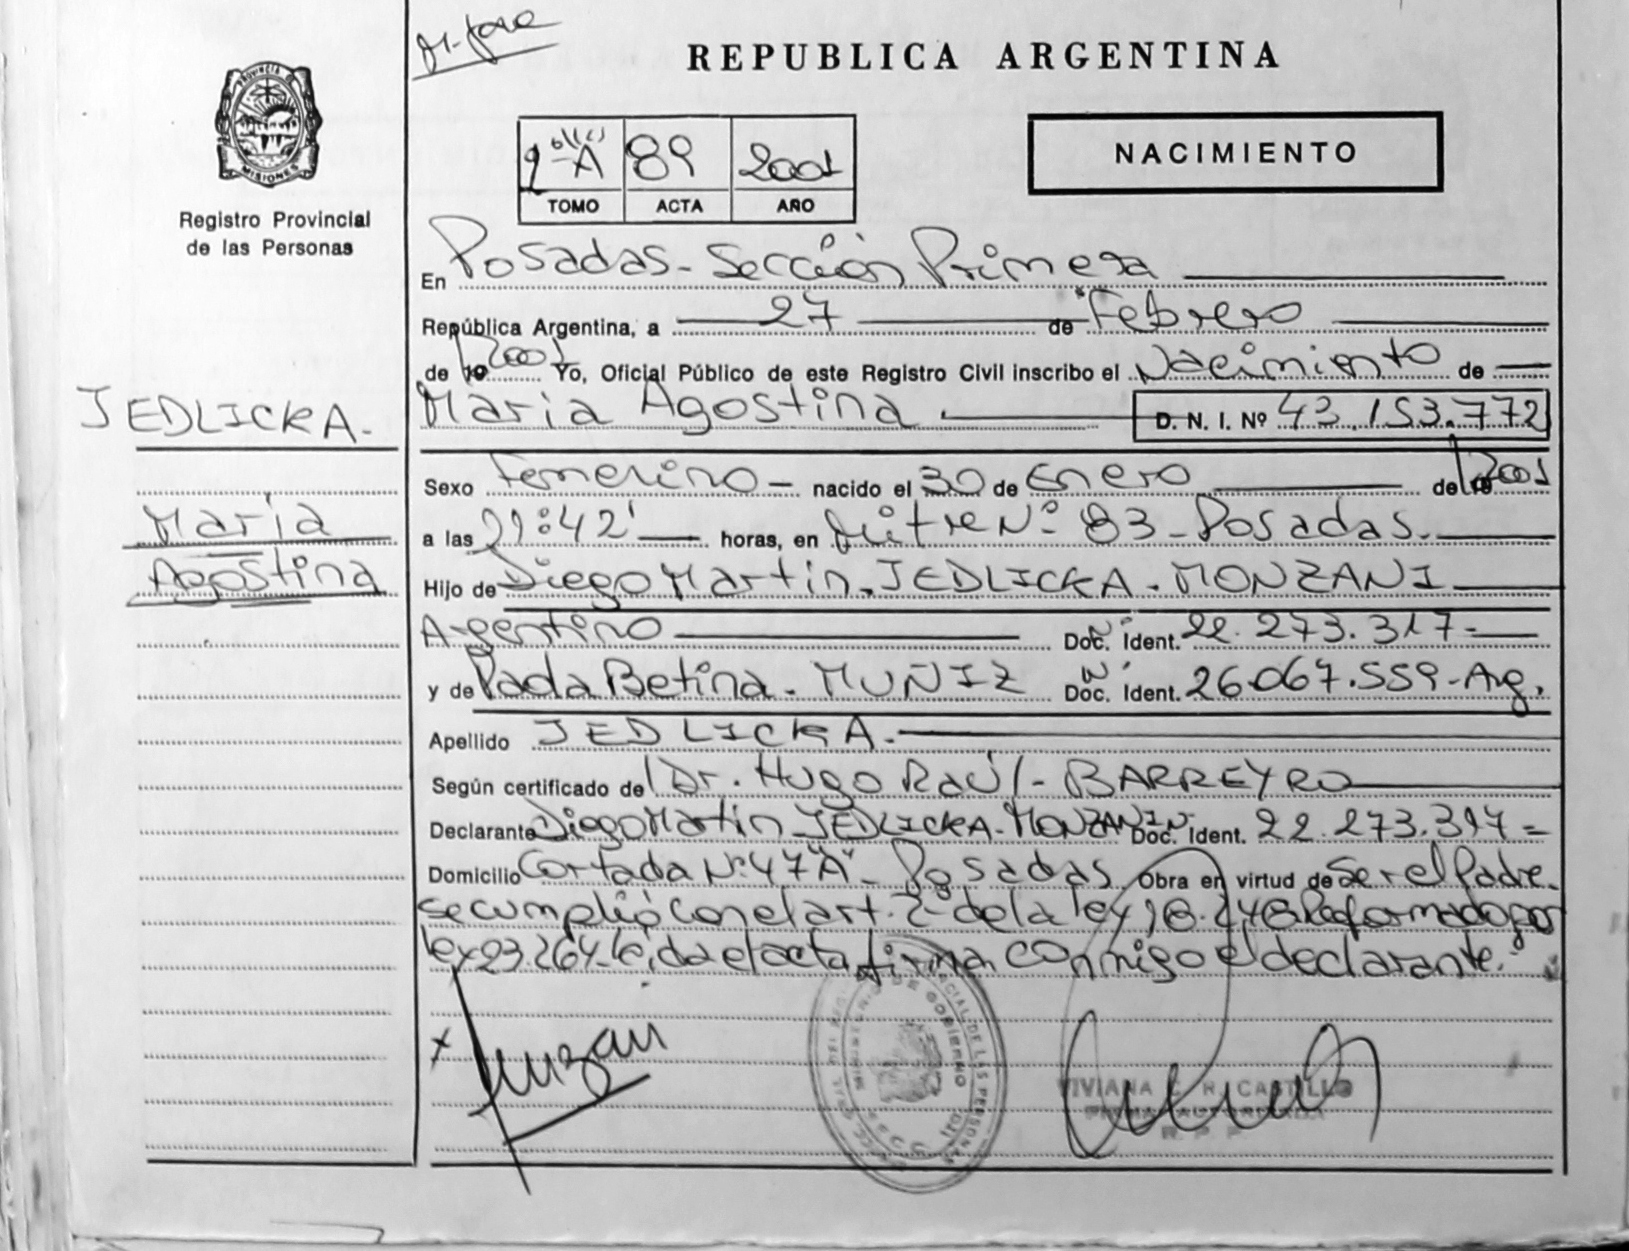 M. Jose
REPUBLICA ARGENTINA
PROVINCIA D MISIONES
Registro Provincial
de las Personas
2º A 89 2001
TOMO ACTA AÑO
NACIMIENTO
En Posadas - Sección Primera
República Argentina, a 27 de Febrero
de 19 2001 Yo, Oficial Público de este Registro Civil inscribo el Nacimiento de
JEDLICKA.
Maria Agostina D. N. I. Nº 43.153.772
Maria
Agostina
Sexo Femenino - nacido el 30 de Enero de 19 2001
a las 21:42' horas, en Mitre Nº 83 - Posadas.
Hijo de Diego Martin. JEDLICKA - MONZANI
Argentino Doc. Ident. Nº 22.273.317-
y de Betina - MUÑIZ Doc. Ident. Nº 26.067.559 - Arg.
Apellido JEDLICKA.
Según certificado de Dr. Hugo Raúl - BARREYRO
Declarante Diego Martin JEDLICKA - MONZANI Nº Doc. Ident. 22.273.317 =
Domicilio Cortada Nº 47 "A" - Posadas Obra en virtud de Ser el Padre.
se cumplió con el art. 2º de la ley 18.248 Reformado por
ley 23.264. leida el acta firma conmigo el declarante.
X
VIVIANA C. R. CASTILLO
FIRMA AUTORIZADA
R. P. P.